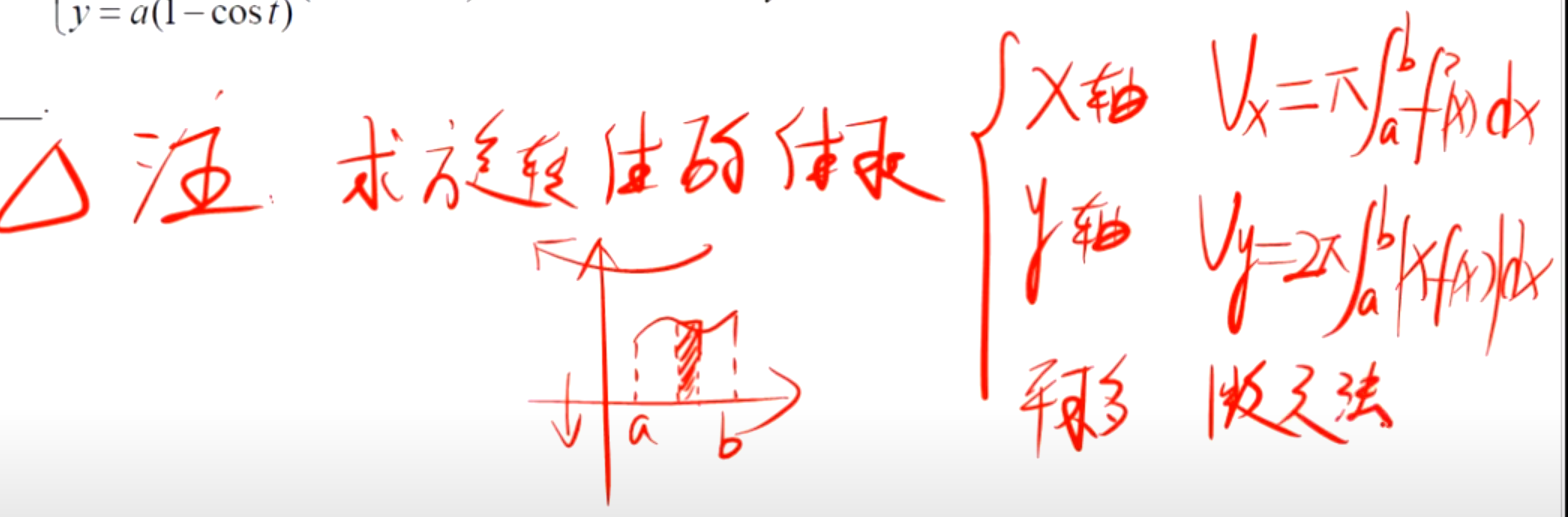 y = a(1-cost)
△ 注. 求旋转体的体积
x轴 Vx = π∫ₐᵇ f²(x) dx
y轴 Vy = 2π∫ₐᵇ |xf(x)| dx
平移 微元法
a b